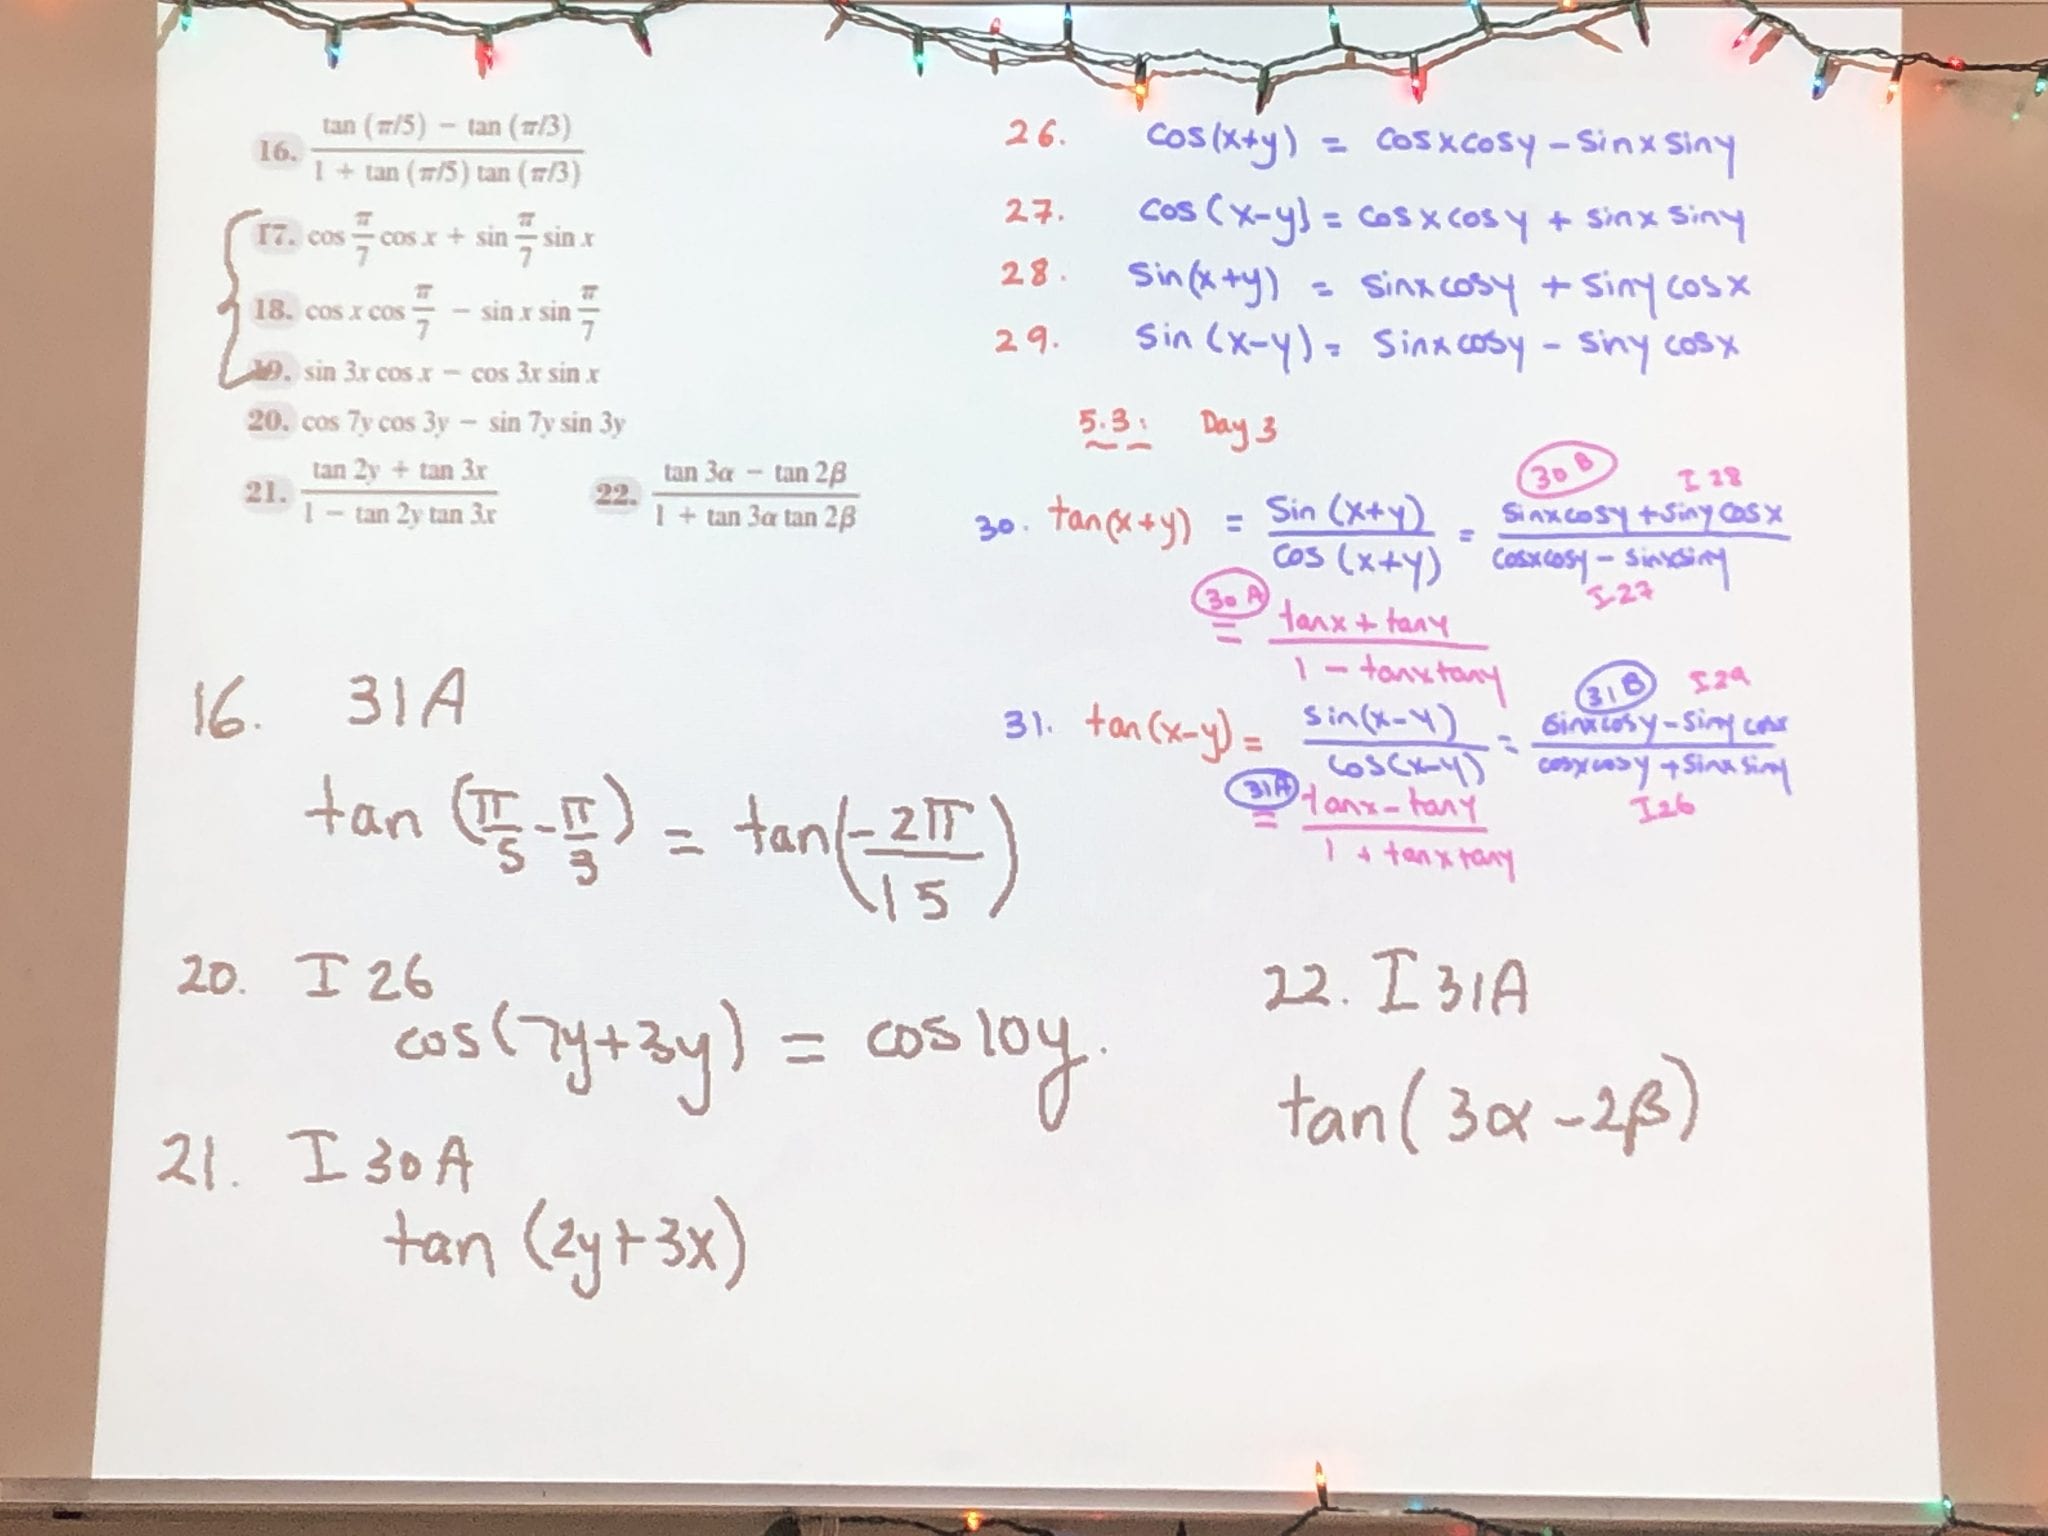 16. tan (π/5) − tan (π/3) / 1 + tan (π/5) tan (π/3)
17. cos π/7 cos x + sin π/7 sin x
18. cos x cos π/7 − sin x sin π/7
19. sin 3x cos x − cos 3x sin x
20. cos 7y cos 3y − sin 7y sin 3y
21. tan 2y + tan 3x / 1 − tan 2y tan 3x
22. tan 3α − tan 2β / 1 + tan 3α tan 2β
26. cos(x+y) = cosxcosy − sinx siny
27. cos(x−y) = cosxcosy + sinx siny
28. sin(x+y) = sinxcosy + siny cosx
29. sin(x−y) = sinxcosy − siny cosx
5.3: Day 3
30B I28
30. tan(x+y) = sin(x+y) / cos(x+y) = sinxcosy + siny cosx / cosxcosy − sinxsiny
I27
30A = tanx + tany / 1 − tanxtany
31B I29
31. tan(x−y) = sin(x−y) / cos(x−y) = sinxcosy − siny cosx / cosxcosy + sinx siny
I26
31A = tanx − tany / 1 + tanxtany
16. 31A
tan (π/5 − π/3) = tan(−2π/15)
20. I 26
cos(7y+3y) = cos 10y.
21. I 30A
tan (2y+3x)
22. I 31A
tan(3α − 2β)